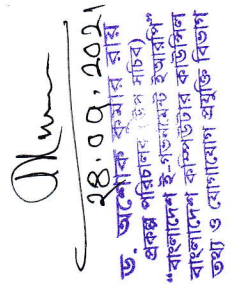 28.09.2021
ড. অশোক কুমার রায়
প্রকল্প পরিচালক (উপ সচিব)
“বাংলাদেশ ই-গভর্নমেন্ট ইআরপি”
বাংলাদেশ কম্পিউটার কাউন্সিল
তথ্য ও যোগাযোগ প্রযুক্তি বিভাগ